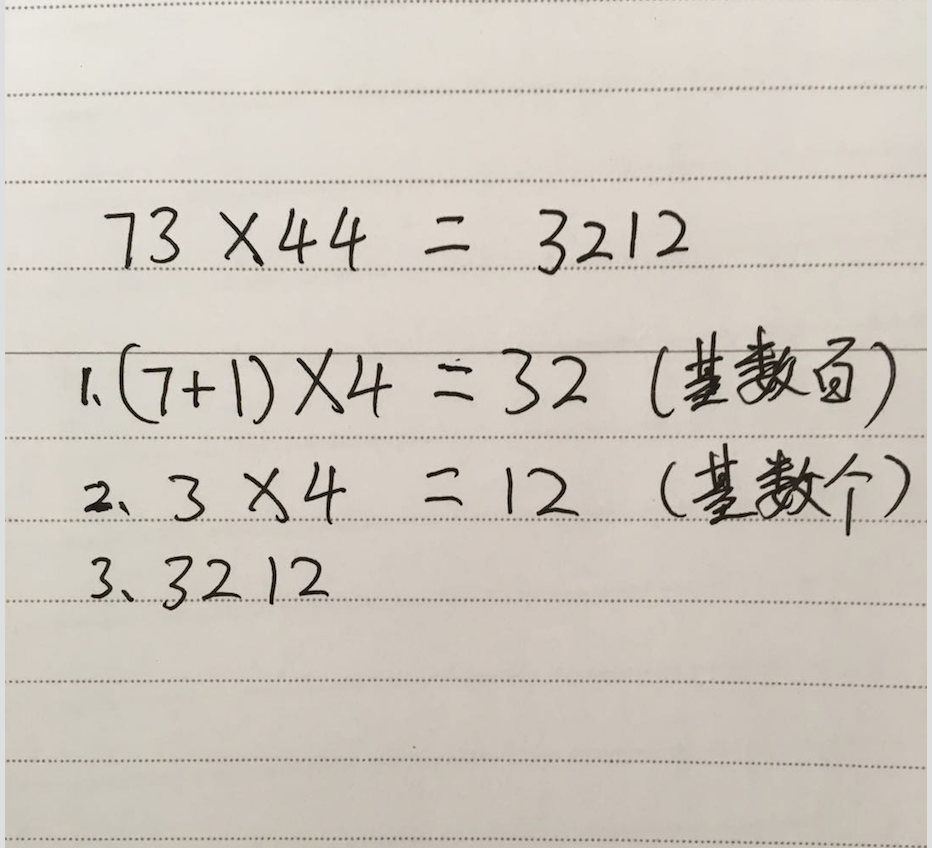 73 × 44 = 3212
1. (7+1) × 4 = 32 (基数百)
2、3 × 4 = 12 (基数个)
3、3212